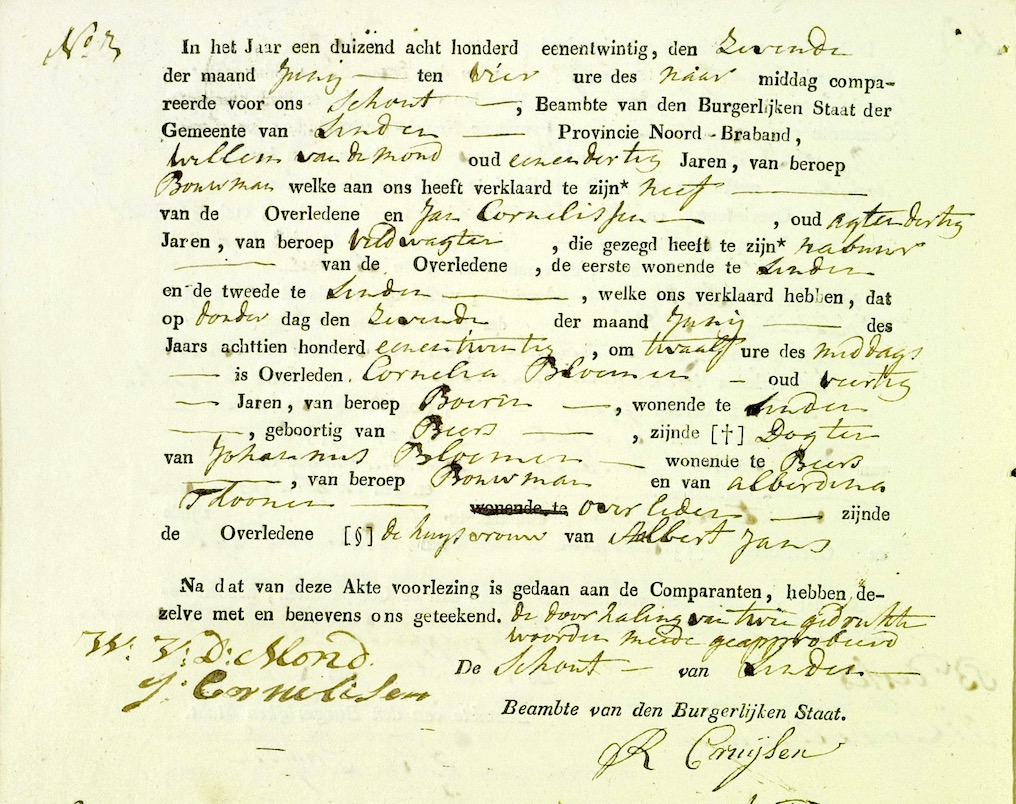 No 3
In het Jaar een duizend acht honderd eenentwintig, den Zevende
der maand Junij — ten vier ure des naar middag compa-
reerde voor ons Schout —, Beambte van den Burgerlijken Staat der
Gemeente van Linden — Provincie Noord-Braband,
Willem van de mond oud eenendertig Jaren, van beroep
Bouwman welke aan ons heeft verklaard te zijn* neef —
van de Overledene en Jan Cornelissen —, oud agtendertig
Jaren, van beroep veldwagter, die gezegd heeft te zijn* nabuur
— van de Overledene, de eerste wonende te Linden
en de tweede te Linden —, welke ons verklaard hebben, dat
op donder dag den Zevende der maand Junij — des
Jaars achttien honderd eenentwintig, om twaalf ure des middags
— is Overleden. Cornelia Bloemen — oud veertig
— Jaren, van beroep Boerin —, wonende te Linden
—, geboortig van Beers —, zijnde [†] Dogter
van Johannes Bloemen — wonende te Beers
—, van beroep Bouwman en van alberdina
Thoonen — wonende te overleden — zijnde
de Overledene [§] de huysvrouw van Albert Jans
Na dat van deze Akte voorlezing is gedaan aan de Comparanten, hebben de-
zelve met en benevens ons geteekend. de doorhaling van twee gedrukte
woorden mede geapprobeerd
W: V: D: Mond.
J: Cornelisen
De Schout — van Linden —
Beambte van den Burgerlijken Staat.
R Cruijsen